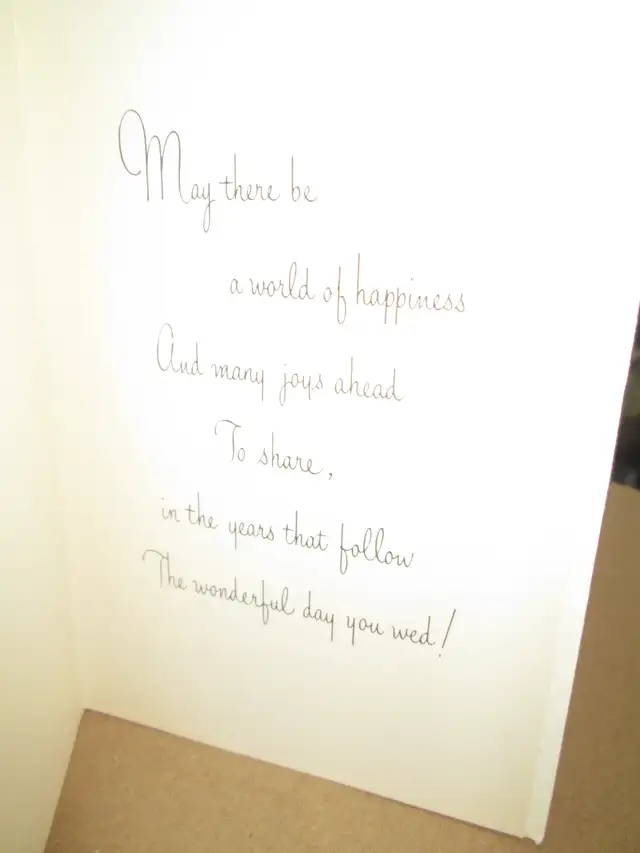 May there be
a world of happiness
And many joys ahead
To share,
in the years that follow
The wonderful day you wed!